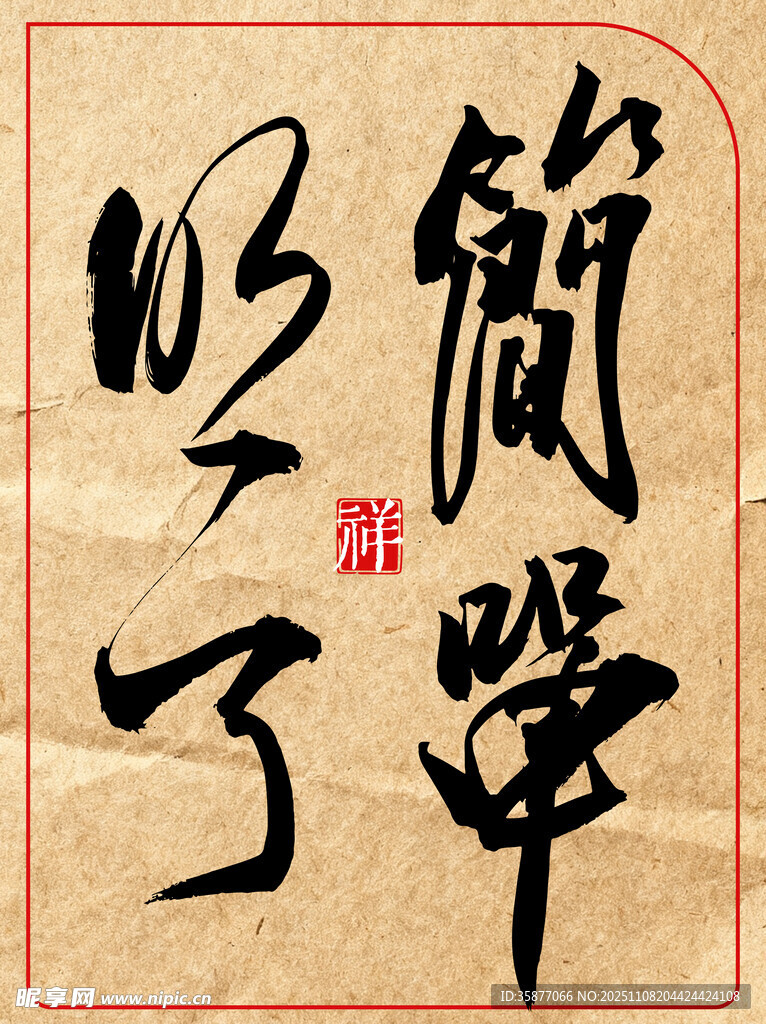 簡單
明了
祥
昵享网 www.nipic.cn
ID:35877066 NO:20251108204424424108